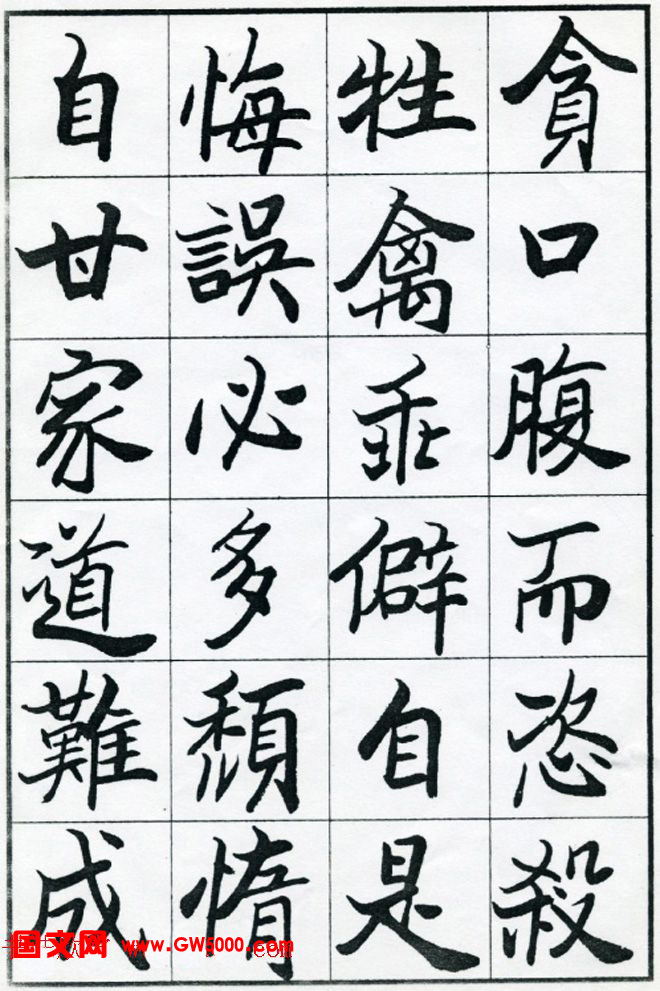 貪口腹而恣殺
牲禽乖僻自是
悔誤必多頹惰
自甘家道難成
国文网 www.GW5000.com